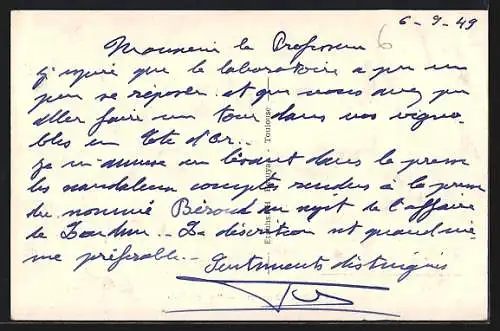 6 - 9 - 49
6
Monsieur le Professeur
J'espère que le laboratoire a pu un
peu se réposer et que vous avez pu
aller faire un tour dans vos vigno-
bles en Cote d'Or..
Je m'amuse en lisant dans la presse
les scandaleux comptes rendus à la presse
du nommé Béroud au sujet de l'affaire
de Loudun.. La discrétion est quand mê-
me préférable..
Sentiments distingués
- Toulouse